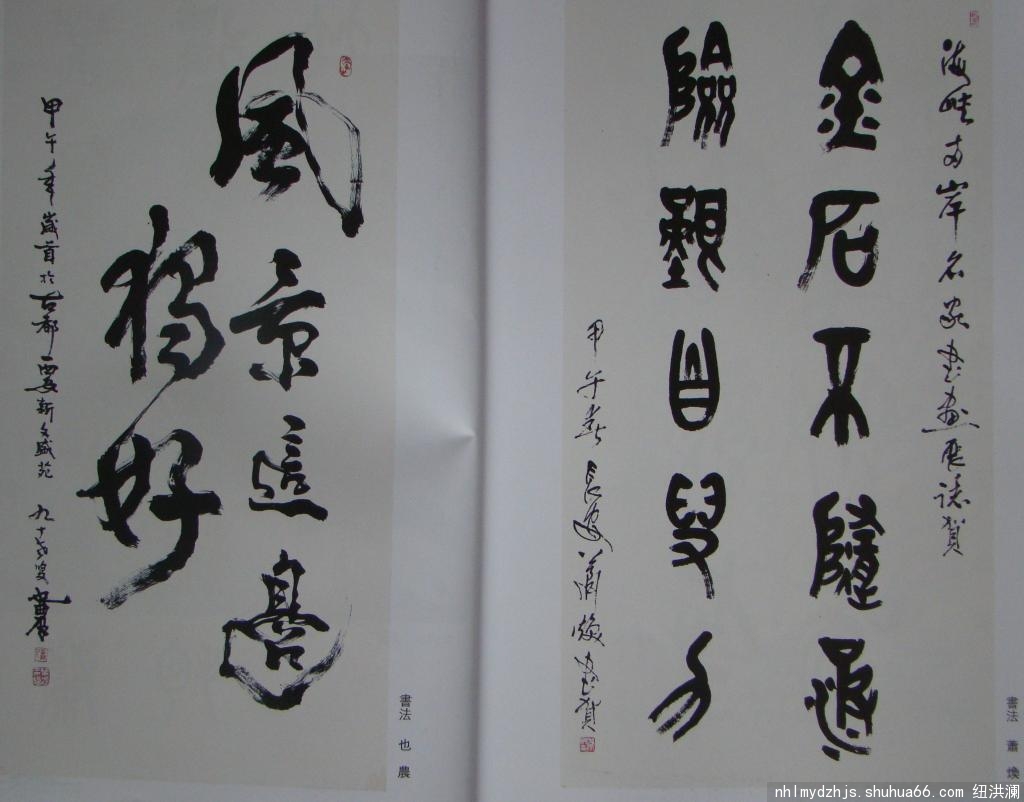 海峽兩岸名家書畫展誌賀
金石不隨
險艱自
甲午春 長安蕭煥書賀
書法 蕭煥
風景這邊
獨好
甲午年歲首於古都西安新文盛苑 九十叟也農
書法 也農
nhlmydzhjs.shuhua66.com 纽洪澜